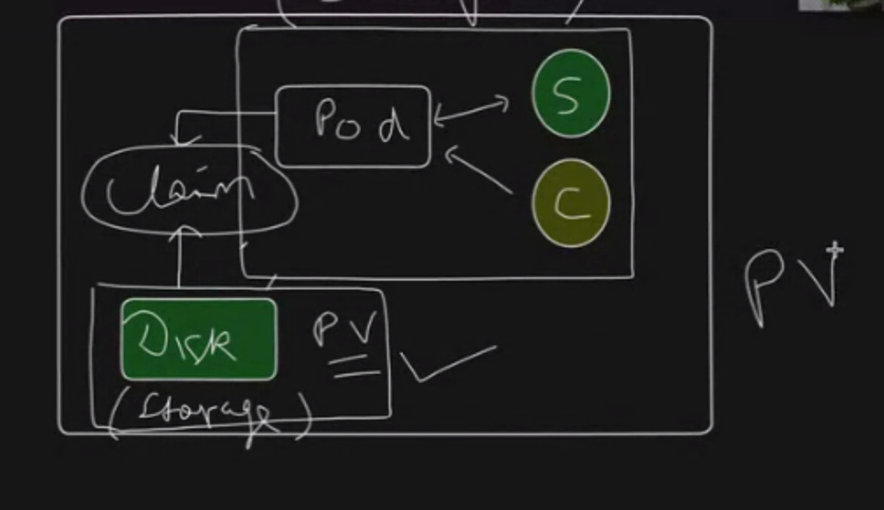 Pod
S
Claim
C
Disk
PV
(Storage)
PV